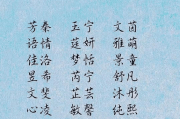 芳秦 玉宁 文茵
语情 莲妍 雅萌
佳洛 梦恬 景童
昱希 芮宁 舒凡
文斐 芷芸 沐彤
心凌 敏馨 纯熙